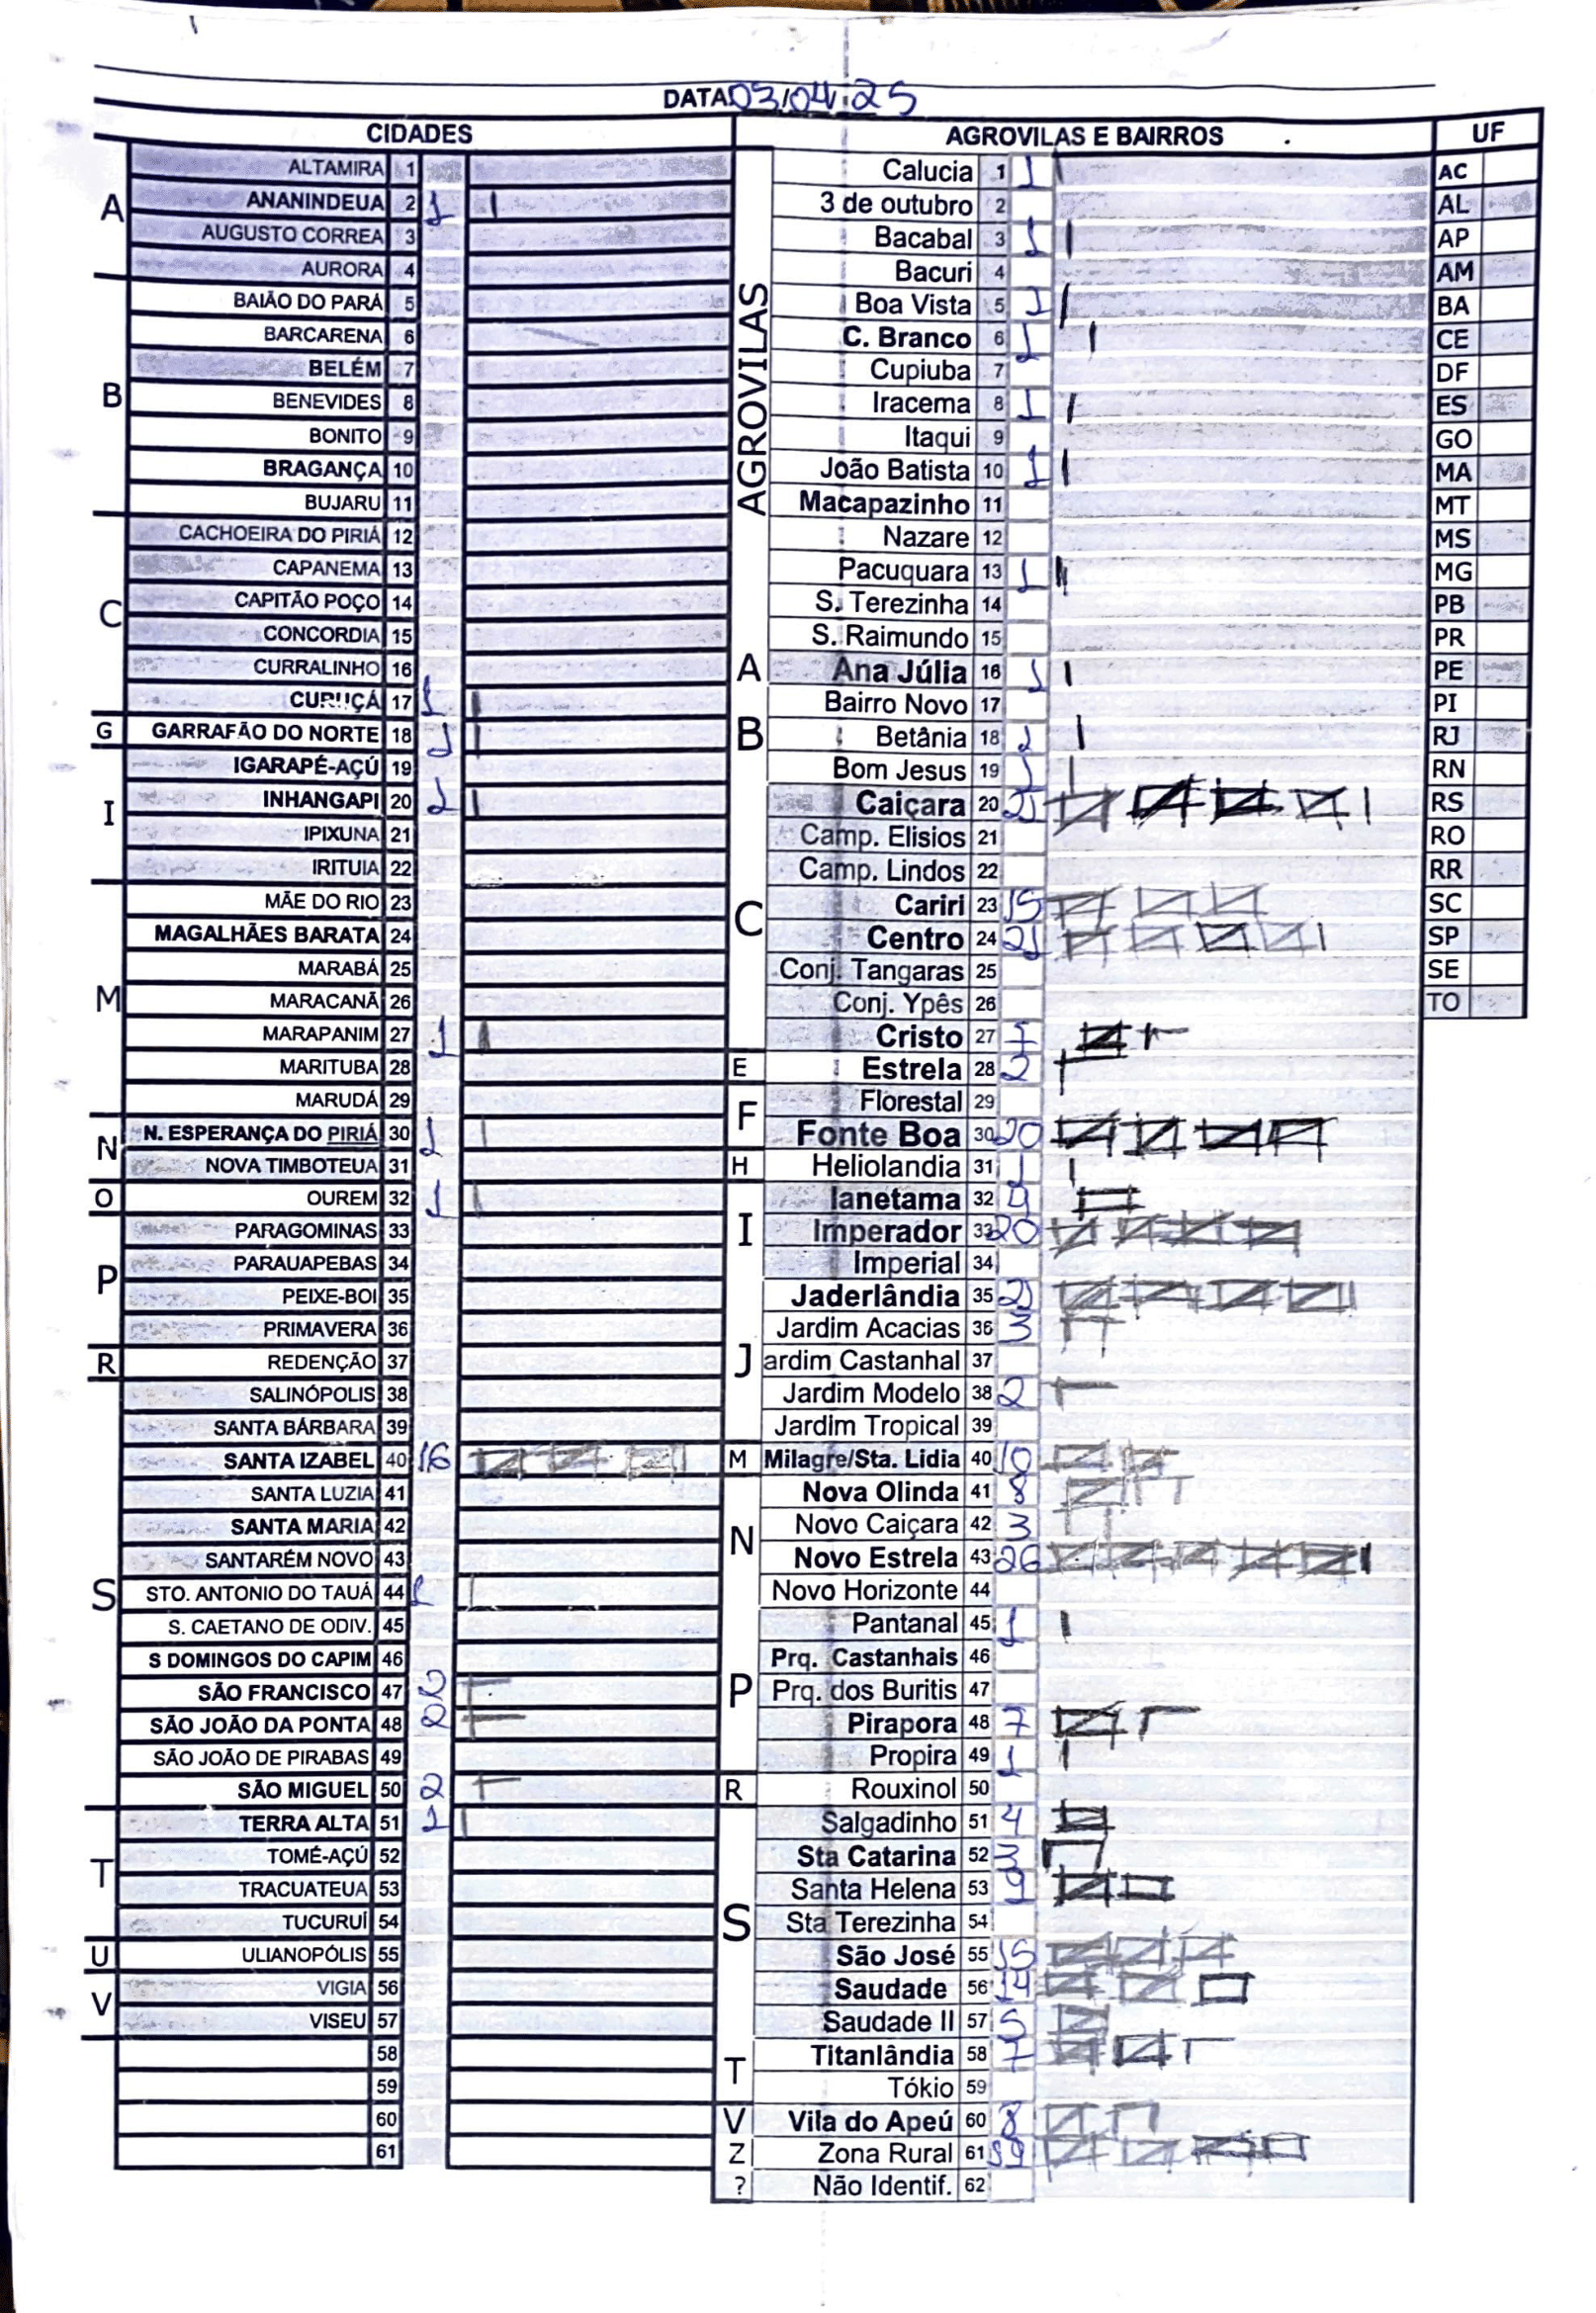 DATA 03/04/25
CIDADES
A
ALTAMIRA 1
ANANINDEUA 2 1
AUGUSTO CORREA 3
AURORA 4
B
BAIÃO DO PARÁ 5
BARCARENA 6
BELÉM 7
BENEVIDES 8
BONITO 9
BRAGANÇA 10
BUJARU 11
C
CACHOEIRA DO PIRIÁ 12
CAPANEMA 13
CAPITÃO POÇO 14
CONCORDIA 15
CURRALINHO 16
CURUÇÁ 17 1
G
GARRAFÃO DO NORTE 18 1
I
IGARAPÉ-AÇÚ 19
INHANGAPI 20 1
IPIXUNA 21
IRITUIA 22
M
MÃE DO RIO 23
MAGALHÃES BARATA 24
MARABÁ 25
MARACANÃ 26
MARAPANIM 27 1
MARITUBA 28
MARUDÁ 29
N
N. ESPERANÇA DO PIRIÁ 30 1
NOVA TIMBOTEUA 31
O
OUREM 32 1
P
PARAGOMINAS 33
PARAUAPEBAS 34
PEIXE-BOI 35
PRIMAVERA 36
R
REDENÇÃO 37
S
SALINÓPOLIS 38
SANTA BÁRBARA 39
SANTA IZABEL 40 16
SANTA LUZIA 41
SANTA MARIA 42
SANTARÉM NOVO 43
STO. ANTONIO DO TAUÁ 44 1
S. CAETANO DE ODIV. 45
S DOMINGOS DO CAPIM 46
SÃO FRANCISCO 47 2
SÃO JOÃO DA PONTA 48 2
SÃO JOÃO DE PIRABAS 49
SÃO MIGUEL 50 2
T
TERRA ALTA 51 1
TOMÉ-AÇÚ 52
TRACUATEUA 53
TUCURUÍ 54
U
ULIANOPÓLIS 55
V
VIGIA 56
VISEU 57
58
59
60
61
AGROVILAS E BAIRROS
AGROVILAS
Calucia 1 1
3 de outubro 2
Bacabal 3 1
Bacuri 4
Boa Vista 5 1
C. Branco 6 1
Cupiuba 7
Iracema 8 1
Itaqui 9
João Batista 10 1
Macapazinho 11
Nazare 12
Pacuquara 13 1
S. Terezinha 14
S. Raimundo 15
A
Ana Júlia 16 1
B
Bairro Novo 17
Betânia 18 1
Bom Jesus 19 1
C
Caiçara 20 21
Camp. Elisios 21
Camp. Lindos 22
Cariri 23 15
Centro 24 21
Conj. Tangaras 25
Conj. Ypês 26
Cristo 27 7
E
Estrela 28 2
F
Florestal 29
Fonte Boa 30 20
H
Heliolandia 31 1
I
Ianetama 32
Imperador 33 20
Imperial 34
J
Jaderlândia 35 21
Jardim Acacias 36 3
ardim Castanhal 37
Jardim Modelo 38 2
Jardim Tropical 39
M
Milagre/Sta. Lidia 40 10
N
Nova Olinda 41 8
Novo Caiçara 42 3
Novo Estrela 43 26
Novo Horizonte 44
P
Pantanal 45 1
Prq. Castanhais 46
Prq. dos Buritis 47
Pirapora 48 7
Propira 49 1
R
Rouxinol 50
S
Salgadinho 51 4
Sta Catarina 52 3
Santa Helena 53 9
Sta Terezinha 54
São José 55 15
Saudade 56 14
Saudade II 57 5
T
Titanlândia 58 7
Tókio 59
V
Vila do Apeú 60 8
Z
Zona Rural 61
?
Não Identif. 62
UF
AC
AL
AP
AM
BA
CE
DF
ES
GO
MA
MT
MS
MG
PB
PR
PE
PI
RJ
RN
RS
RO
RR
SC
SP
SE
TO